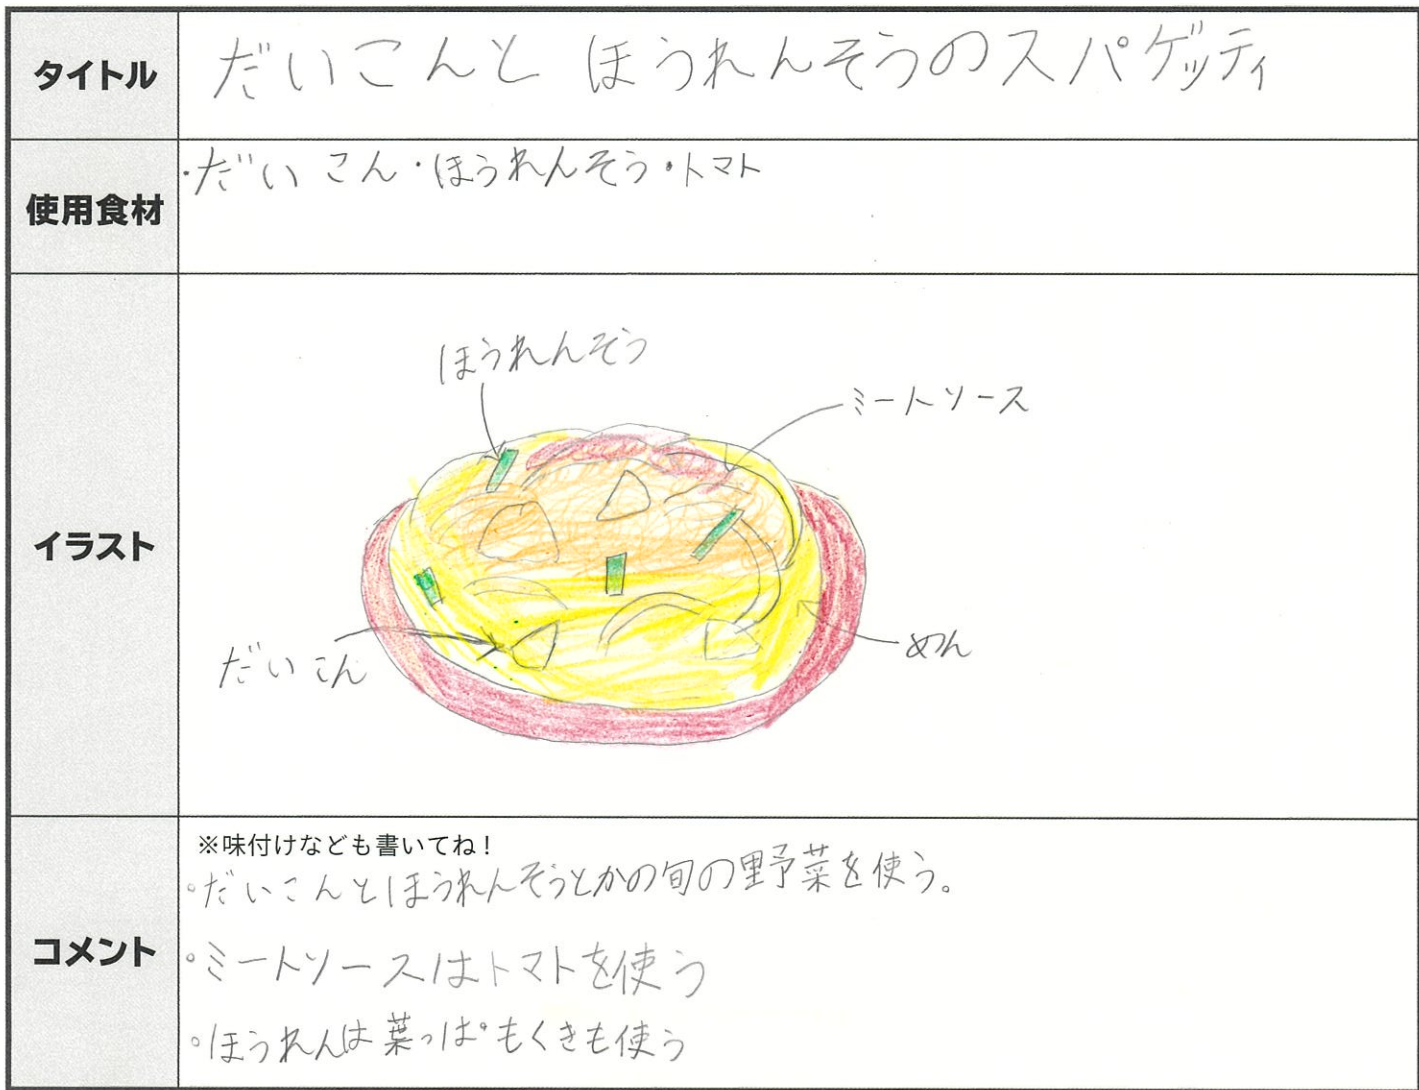 タイトル
だいこんと ほうれんそうのスパゲッティ
使用食材
・だいこん・ほうれんそう・トマト
イラスト
ほうれんそう
ミートソース
だいこん
めん
コメント
※味付けなども書いてね！
。だいこんとほうれんそうとかの旬の野菜を使う。
。ミートソースはトマトを使う
。ほうれんは葉っぱもくきも使う